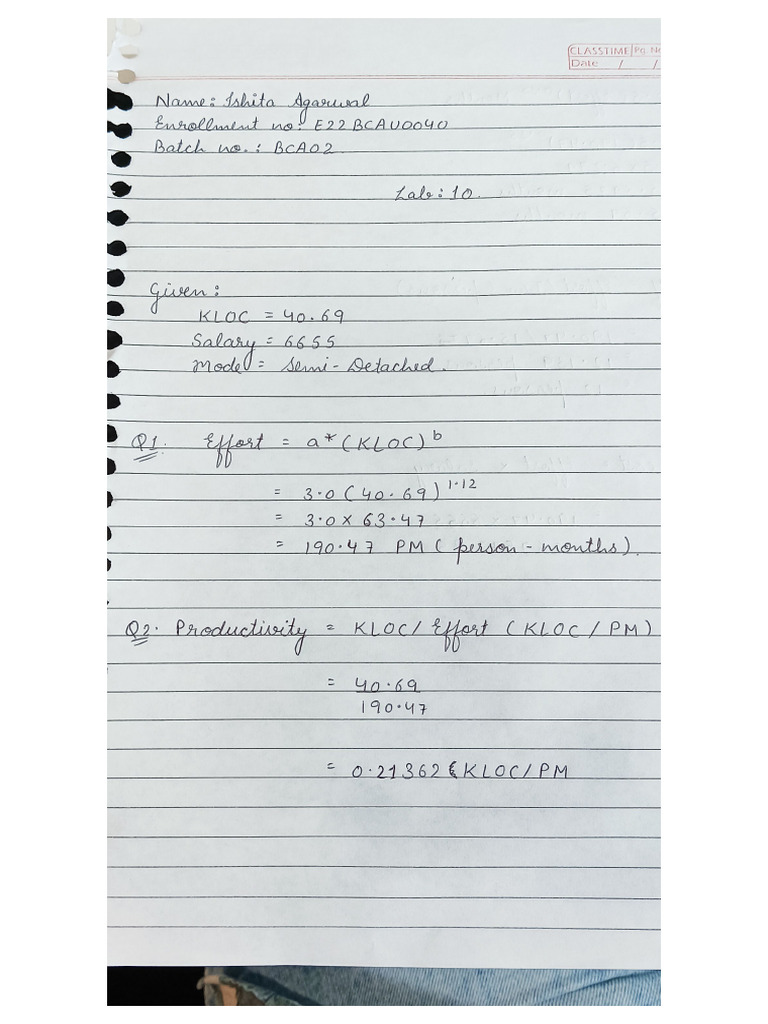 CLASSTIME Pg. No
Date / /
Name: Ishita Agarwal
Enrollment no: E22BCAU0040
Batch no.: BCA02
Lab: 10.
Given:
KLOC = 40.69
Salary = 6655
Mode = Semi-Detached.
Q1. Effort = a*(KLOC)^b
= 3.0(40.69)^1.12
= 3.0 x 63.47
= 190.47 PM (person-months).
Q2. Productivity = KLOC/Effort (KLOC/PM)
= 40.69
190.47
= 0.21362 KLOC/PM